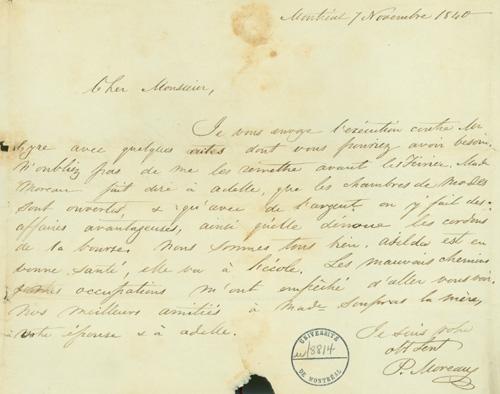 Montréal 7 Novembre 1840
Cher Monsieur,
Je vous envoye l'exécution contre Mr
Cyre avec quelques autres dont vous pourrez avoir besoin.
N'oubliez pas de me les remettre avant le Février. Mad
Moreau fait dire à adelle, que les chambres de Modes
sont ouvertes, & qu'avec de l'argent on y fait des
affaires avantageuses, ainsi qu'elle dénoue les cordons
de la bourse. Nous sommes tous bien. est en
bonne santé, elle va à l'école. Les mauvais chemins
occupations m'ont empêché d'aller vous voir.
Nos meilleurs amitiés à Made Soupras la mère,
votre épouse & à adelle.
Je suis votre
obt Sert
P. Moreau
UNIVERSITÉ
u/8814
DE MONTRÉAL